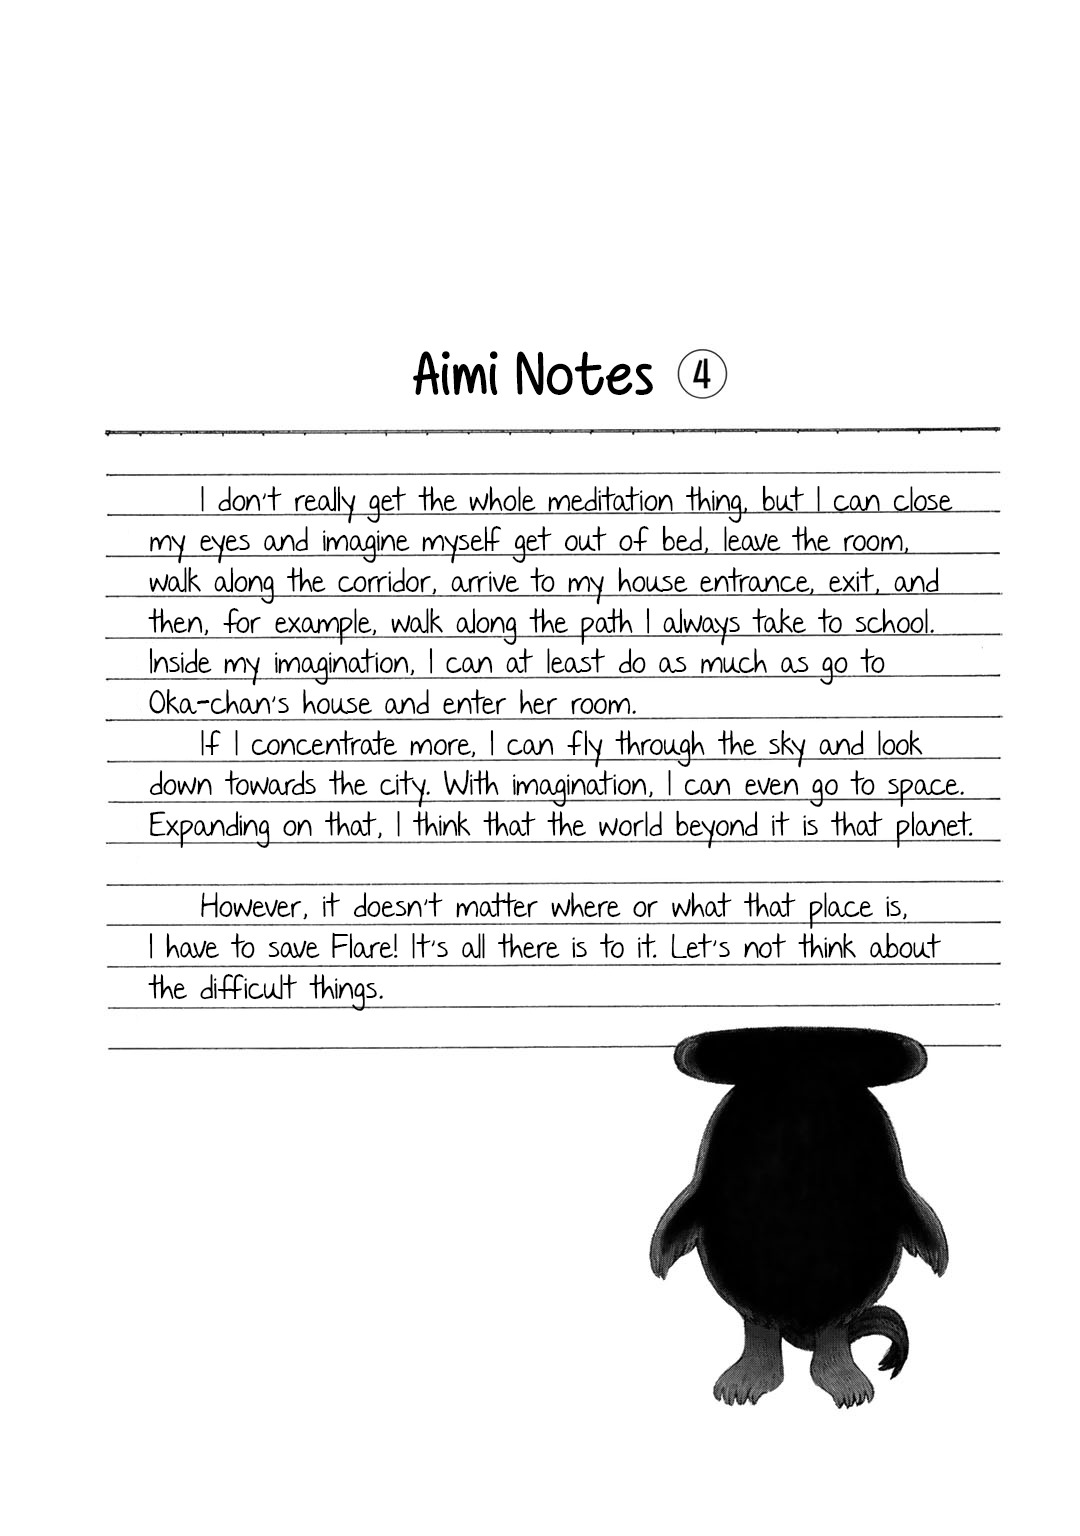 Aimi Notes ④
I don't really get the whole meditation thing, but I can close
my eyes and imagine myself get out of bed, leave the room,
walk along the corridor, arrive to my house entrance, exit, and
then, for example, walk along the path I always take to school.
Inside my imagination, I can at least do as much as go to
Oka-chan's house and enter her room.
If I concentrate more, I can fly through the sky and look
down towards the city. With imagination, I can even go to space.
Expanding on that, I think that the world beyond it is that planet.
However, it doesn't matter where or what that place is,
I have to save Flare! It's all there is to it. Let's not think about
the difficult things.